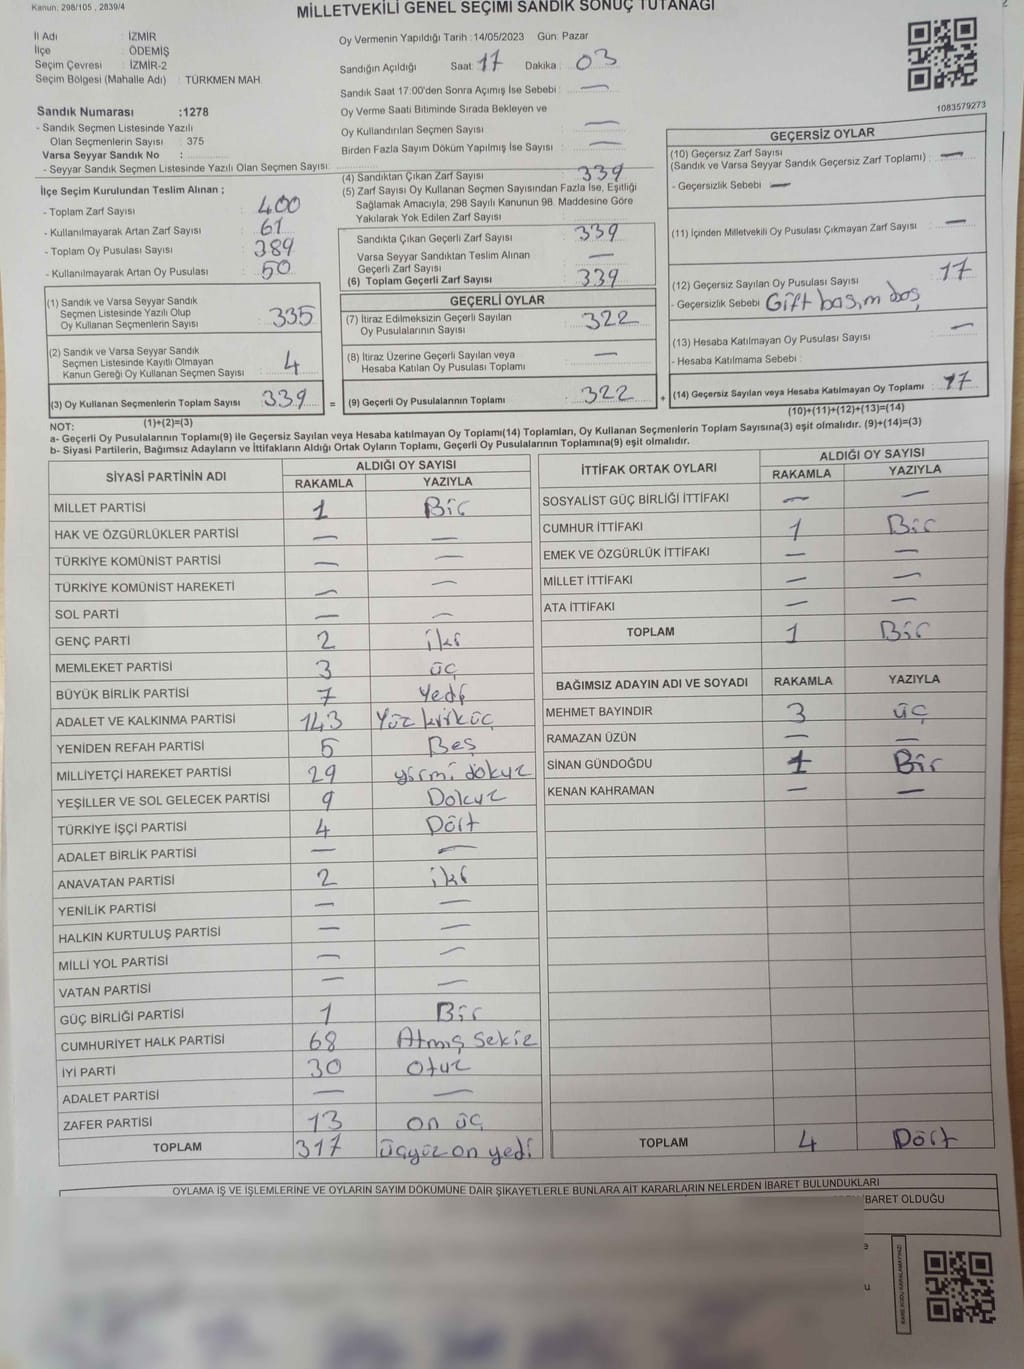 Kanun, 298/105 , 2839/4
MİLLETVEKİLİ GENEL SEÇİMİ SANDIK SONUÇ TUTANAĞI
İl Adı : İZMİR
İlçe : ÖDEMİŞ
Seçim Çevresi : İZMİR-2
Seçim Bölgesi (Mahalle Adı) : TÜRKMEN MAH.
Sandık Numarası :1278
- Sandık Seçmen Listesinde Yazılı
Olan Seçmenlerin Sayısı : 375
Varsa Seyyar Sandık No :
- Seyyar Sandık Seçmen Listesinde Yazılı Olan Seçmen Sayısı :
İlçe Seçim Kurulundan Teslim Alınan ;
- Toplam Zarf Sayısı : 400
- Kullanılmayarak Artan Zarf Sayısı : 61
- Toplam Oy Pusulası Sayısı : 389
- Kullanılmayarak Artan Oy Pusulası : 50
(1) Sandık ve Varsa Seyyar Sandık
Seçmen Listesinde Yazılı Olup
Oy Kullanan Seçmenlerin Sayısı : 335
(2) Sandık ve Varsa Seyyar Sandık
Seçmen Listesinde Kayıtlı Olmayan
Kanun Gereği Oy Kullanan Seçmen Sayısı : 4
(3) Oy Kullanan Seçmenlerin Toplam Sayısı : 339 =
(1)+(2)=(3)
Oy Vermenin Yapıldığı Tarih :14/05/2023 Gün: Pazar
Sandığın Açıldığı Saat: 17 Dakika : 03
Sandık Saat 17:00'den Sonra Açımış İse Sebebi : —
Oy Verme Saati Bitiminde Sırada Bekleyen ve
Oy Kullandırılan Seçmen Sayısı : —
Birden Fazla Sayım Döküm Yapılmış İse Sayısı : —
(4) Sandıktan Çıkan Zarf Sayısı : 339
(5) Zarf Sayısı Oy Kullanan Seçmen Sayısından Fazla İse, Eşitliği
Sağlamak Amacıyla, 298 Sayılı Kanunun 98. Maddesine Göre
Yakılarak Yok Edilen Zarf Sayısı :
Sandıkta Çıkan Geçerli Zarf Sayısı : 339
Varsa Seyyar Sandıktan Teslim Alınan
Geçerli Zarf Sayısı : —
(6) Toplam Geçerli Zarf Sayısı : 339
GEÇERLİ OYLAR
(7) İtiraz Edilmeksizin Geçerli Sayılan
Oy Pusulalarının Sayısı : 322
(8) İtiraz Üzerine Geçerli Sayılan veya
Hesaba Katılan Oy Pusulası Toplamı : —
(9) Geçerli Oy Pusulalarının Toplamı : 322 +
1083579273
GEÇERSİZ OYLAR
(10) Geçersiz Zarf Sayısı
(Sandık ve Varsa Seyyar Sandık Geçersiz Zarf Toplamı) : —
- Geçersizlik Sebebi : —
(11) İçinden Milletvekili Oy Pusulası Çıkmayan Zarf Sayısı : —
(12) Geçersiz Sayılan Oy Pusulası Sayısı : 17
- Geçersizlik Sebebi : Çift basım boş
(13) Hesaba Katılmayan Oy Pusulası Sayısı : —
- Hesaba Katılmama Sebebi :
(14) Geçersiz Sayılan veya Hesaba Katılmayan Oy Toplamı : 17
(10)+(11)+(12)+(13)=(14)
NOT:
a- Geçerli Oy Pusulalarının Toplamı(9) ile Geçersiz Sayılan veya Hesaba katılmayan Oy Toplamı(14) Toplamları, Oy Kullanan Seçmenlerin Toplam Sayısına(3) eşit olmalıdır. (9)+(14)=(3)
b- Siyasi Partilerin, Bağımsız Adayların ve İttifakların Aldığı Ortak Oyların Toplamı, Geçerli Oy Pusulalarının Toplamına(9) eşit olmalıdır.
SİYASİ PARTİNİN ADI ALDIĞI OY SAYISI
RAKAMLA YAZIYLA
MİLLET PARTİSİ 1 Bir
HAK VE ÖZGÜRLÜKLER PARTİSİ — —
TÜRKİYE KOMÜNİST PARTİSİ — —
TÜRKİYE KOMÜNİST HAREKETİ — —
SOL PARTİ — —
GENÇ PARTİ 2 iki
MEMLEKET PARTİSİ 3 üç
BÜYÜK BİRLİK PARTİSİ 7 Yedi
ADALET VE KALKINMA PARTİSİ 143 Yüz kırk üç
YENİDEN REFAH PARTİSİ 5 Beş
MİLLİYETÇİ HAREKET PARTİSİ 29 yirmi dokuz
YEŞİLLER VE SOL GELECEK PARTİSİ 9 Dokuz
TÜRKİYE İŞÇİ PARTİSİ 4 Dört
ADALET BİRLİK PARTİSİ — —
ANAVATAN PARTİSİ 2 iki
YENİLİK PARTİSİ — —
HALKIN KURTULUŞ PARTİSİ — —
MİLLİ YOL PARTİSİ — —
VATAN PARTİSİ — —
GÜÇ BİRLİĞİ PARTİSİ 1 Bir
CUMHURİYET HALK PARTİSİ 68 Atmış sekiz
İYİ PARTİ 30 Otuz
ADALET PARTİSİ — —
ZAFER PARTİSİ 13 on üç
TOPLAM 317 üçyüz on yedi
İTTİFAK ORTAK OYLARI ALDIĞI OY SAYISI
RAKAMLA YAZIYLA
SOSYALİST GÜÇ BİRLİĞİ İTTİFAKI — —
CUMHUR İTTİFAKI 1 Bir
EMEK VE ÖZGÜRLÜK İTTİFAKI — —
MİLLET İTTİFAKI — —
ATA İTTİFAKI — —
TOPLAM 1 Bir
BAĞIMSIZ ADAYIN ADI VE SOYADI RAKAMLA YAZIYLA
MEHMET BAYINDIR 3 üç
RAMAZAN ÜZÜN — —
SİNAN GÜNDOĞDU 1 Bir
KENAN KAHRAMAN — —
TOPLAM 4 Dört
OYLAMA İŞ VE İŞLEMLERİNE VE OYLARIN SAYIM DÖKÜMÜNE DAİR ŞİKAYETLERLE BUNLARA AİT KARARLARIN NELERDEN İBARET BULUNDUKLARI
İBARET OLDUĞU
KARE KODU KARALAMAYINIZ!